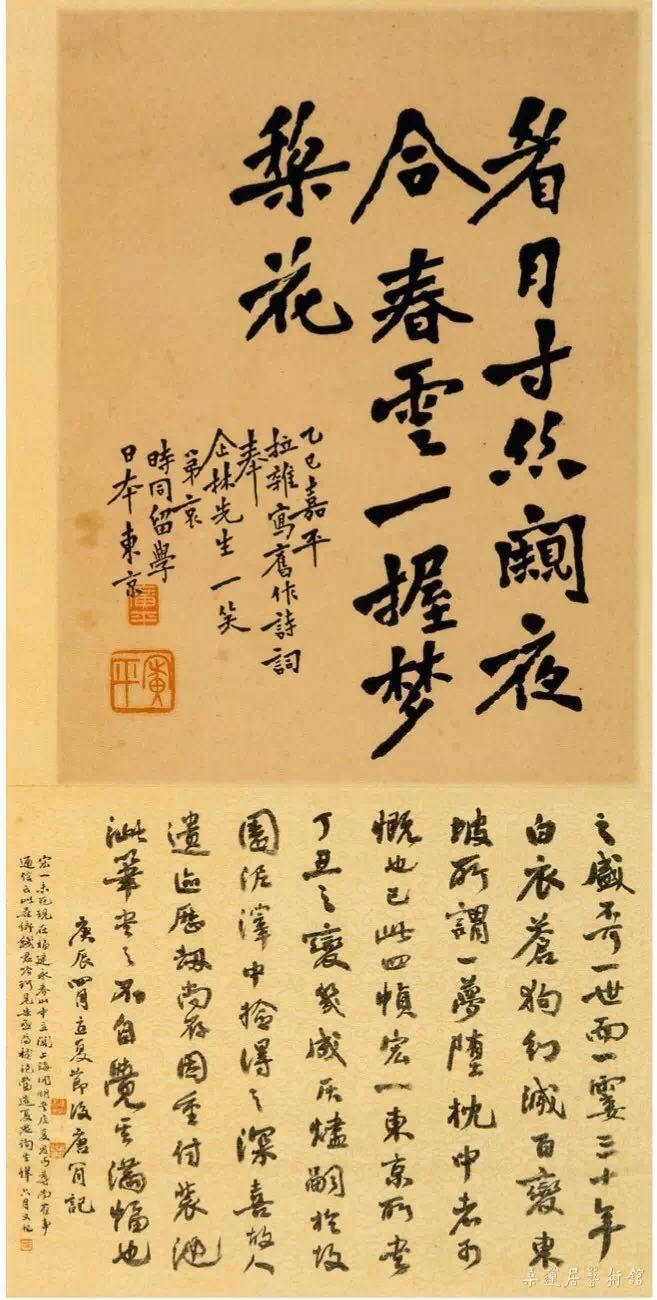 看月寸絲闚夜
合春雲一握梦
梨花
乙巳嘉平
拉雜寫舊作詩詞
奉
企林先生一笑
弟哀
時同留學
日本東京
之盛奇一世而一霎三十年
白衣蒼狗幻滅百變東
坡所謂一夢墮枕中者可
慨也已此四幀宏一東京所書
丁丑之變幾成灰燼嗣於故
園泥澤中撿得之深喜故人
遺迹歷劫尚存因重付裝池
泚筆書之不自覺其滿幅也
庚辰四月立夏節後唐肎記
宏一未死現在福建永春山中聞上海開明書店夏君丏尊尚在
桑蓮居藝術館